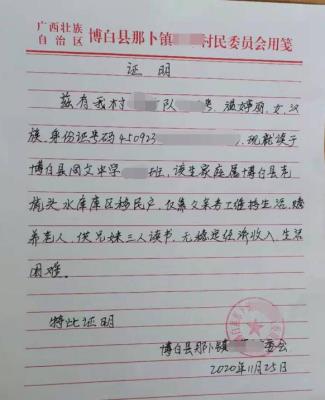 广西壮族
自治区
博白县那卜镇 村民委员会用笺
证明
兹有我村 队 号,温婷丽,女,汉
族,身份证号码450923 ,现就读于
博白县周文中学 班,该生家庭属博白县老
虎头水库库区移民户,仅靠父亲务工维持生活,赡
养老人,供兄妹三人读书,无稳定经济收入,生活
困难。
特此证明
博白县那卜镇 委会
2020年11月25日